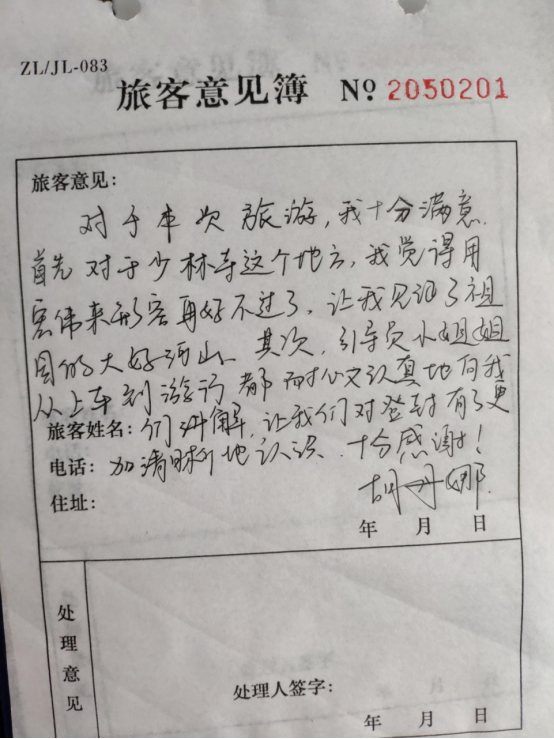 ZL/JL-083
旅客意见簿 № 2050201
旅客意见：
对于本次旅游，我十分满意.
首先对于少林寺这个地方，我觉得用
宏伟来形容再好不过了，让我见证了祖
国的大好河山、其次，引导员小姐姐
从上车到游行都耐心又认真地向我
旅客姓名：们讲解，让我们对登封有了更
电话：加清晰地认识.十分感谢！
住址：
胡丹娜.
年 月 日
处理意见
处理人签字：
年 月 日